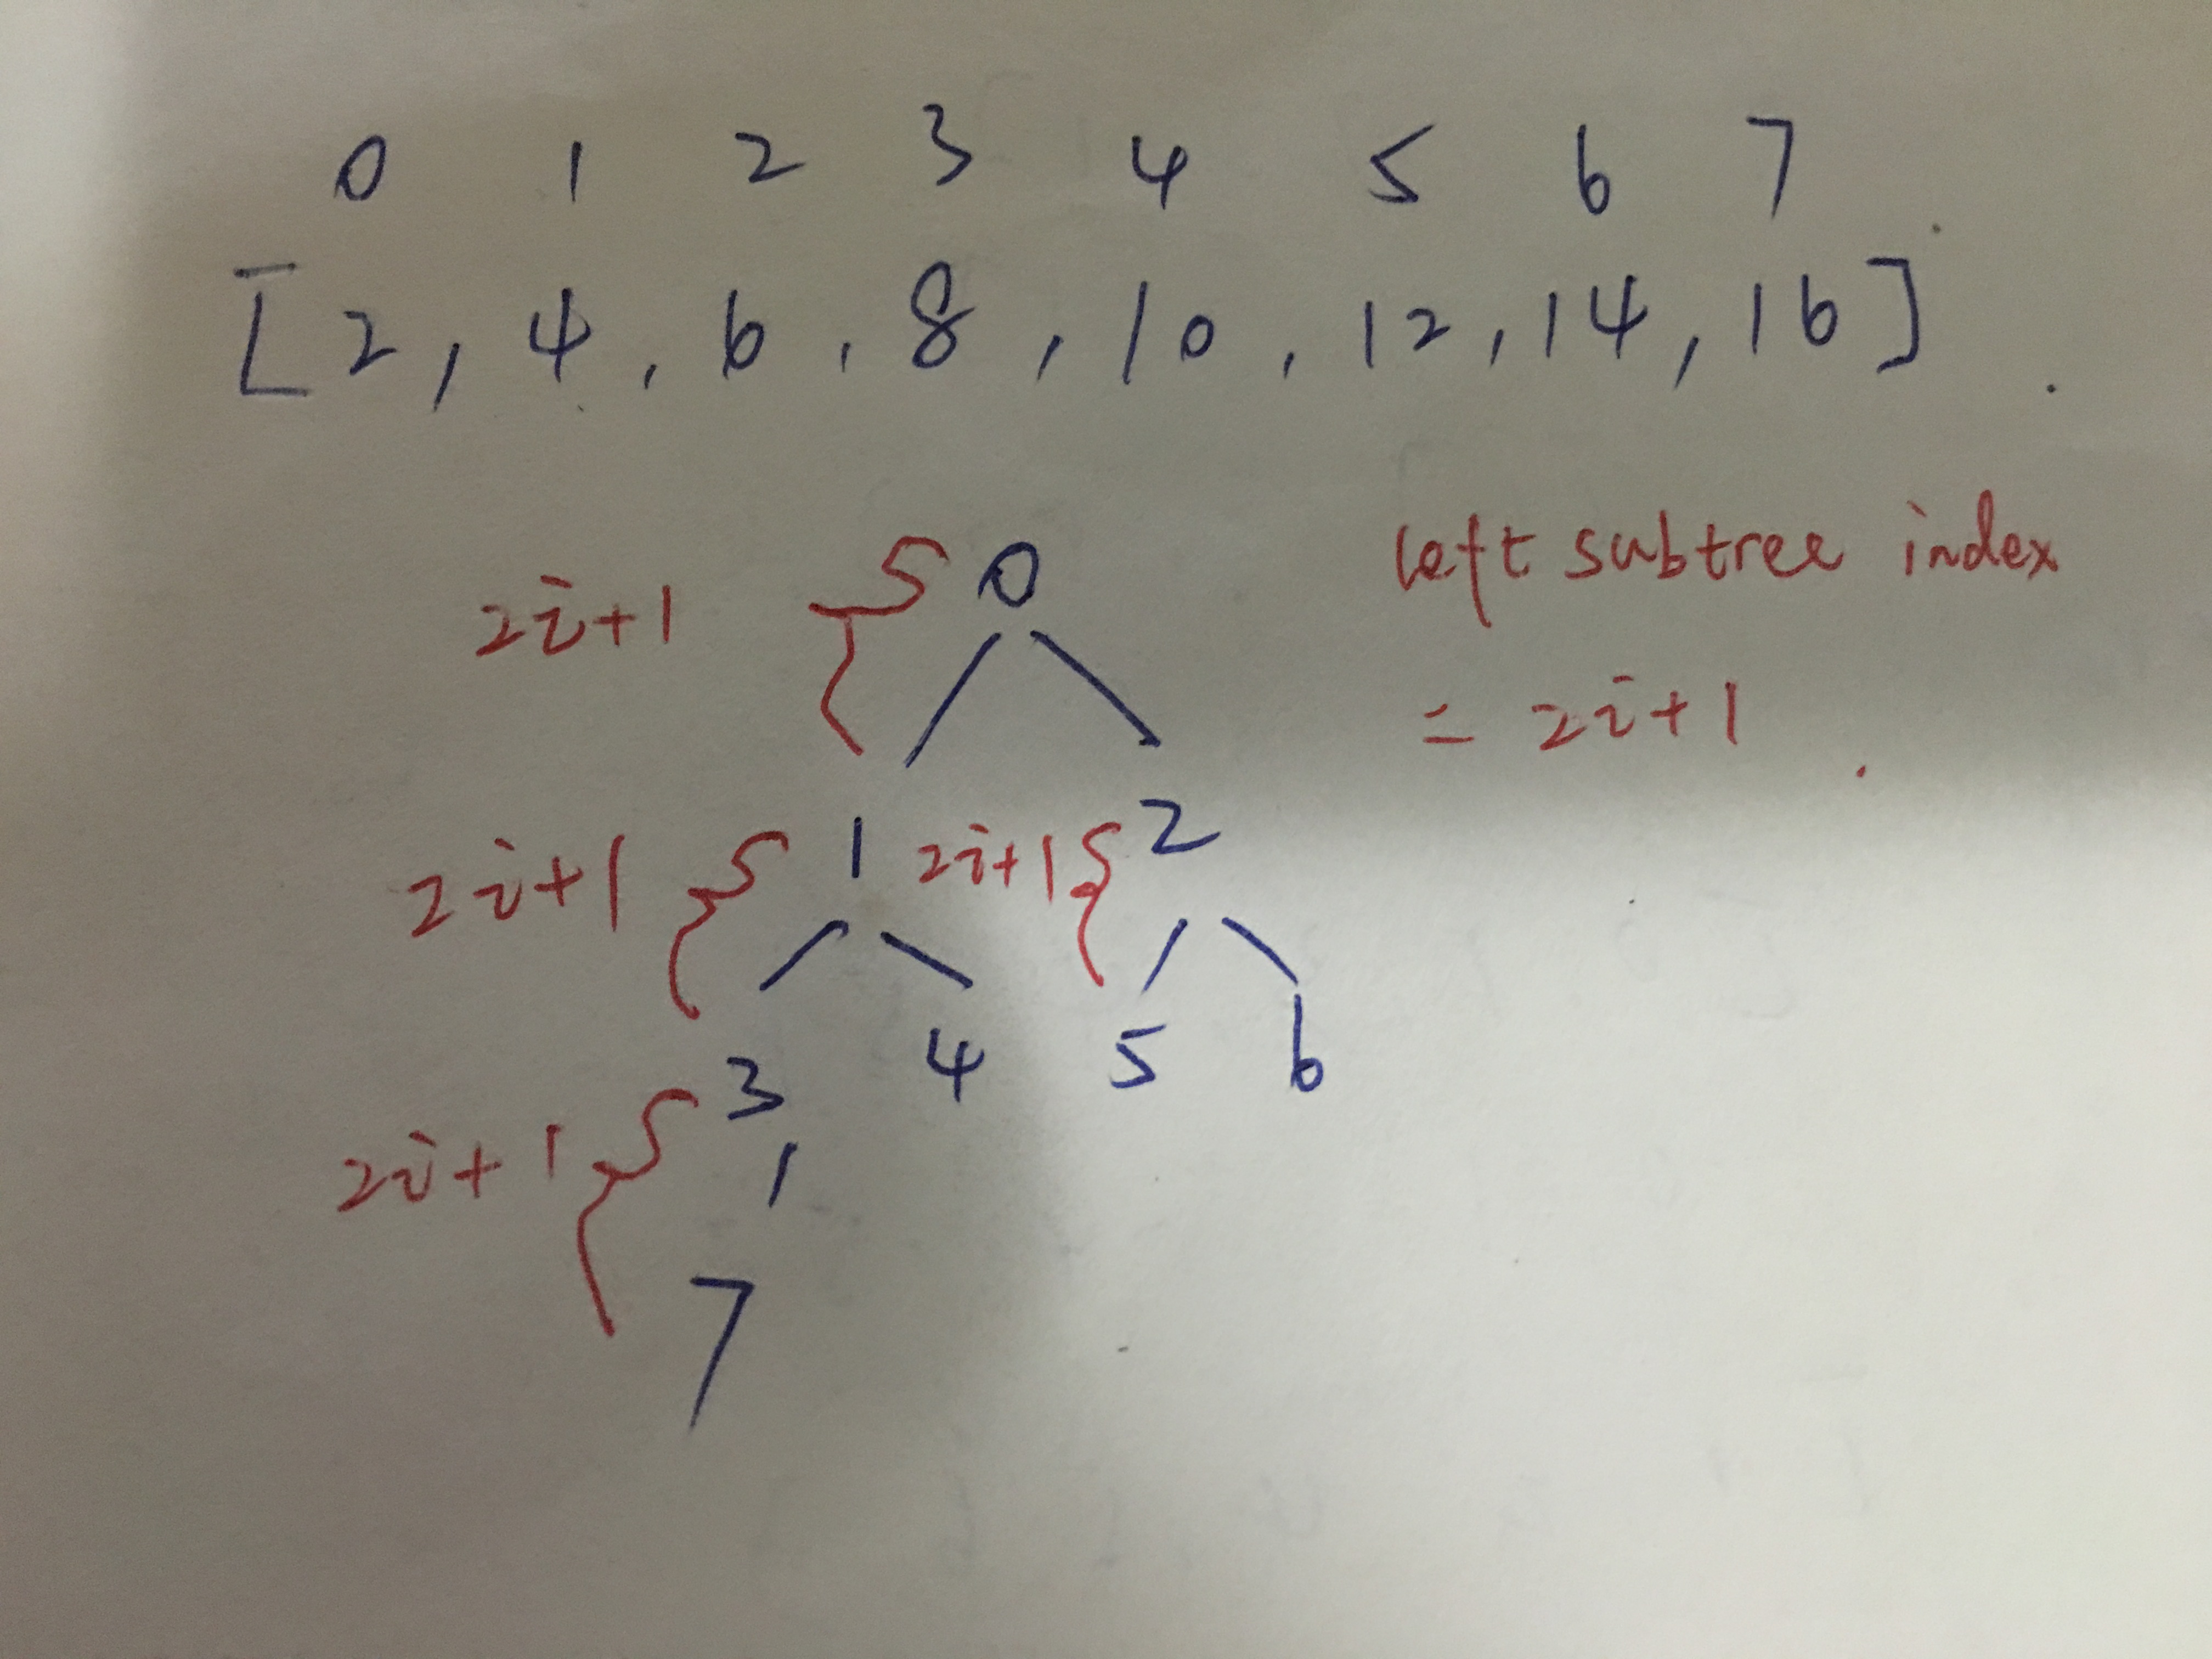 0 1 2 3 4 5 6 7
[2, 4, 6, 8, 10, 12, 14, 16]
left subtree index
= 2i+1
0
2i+1
1 2
2i+1 2i+1
3 4 5 6
2i+1
7